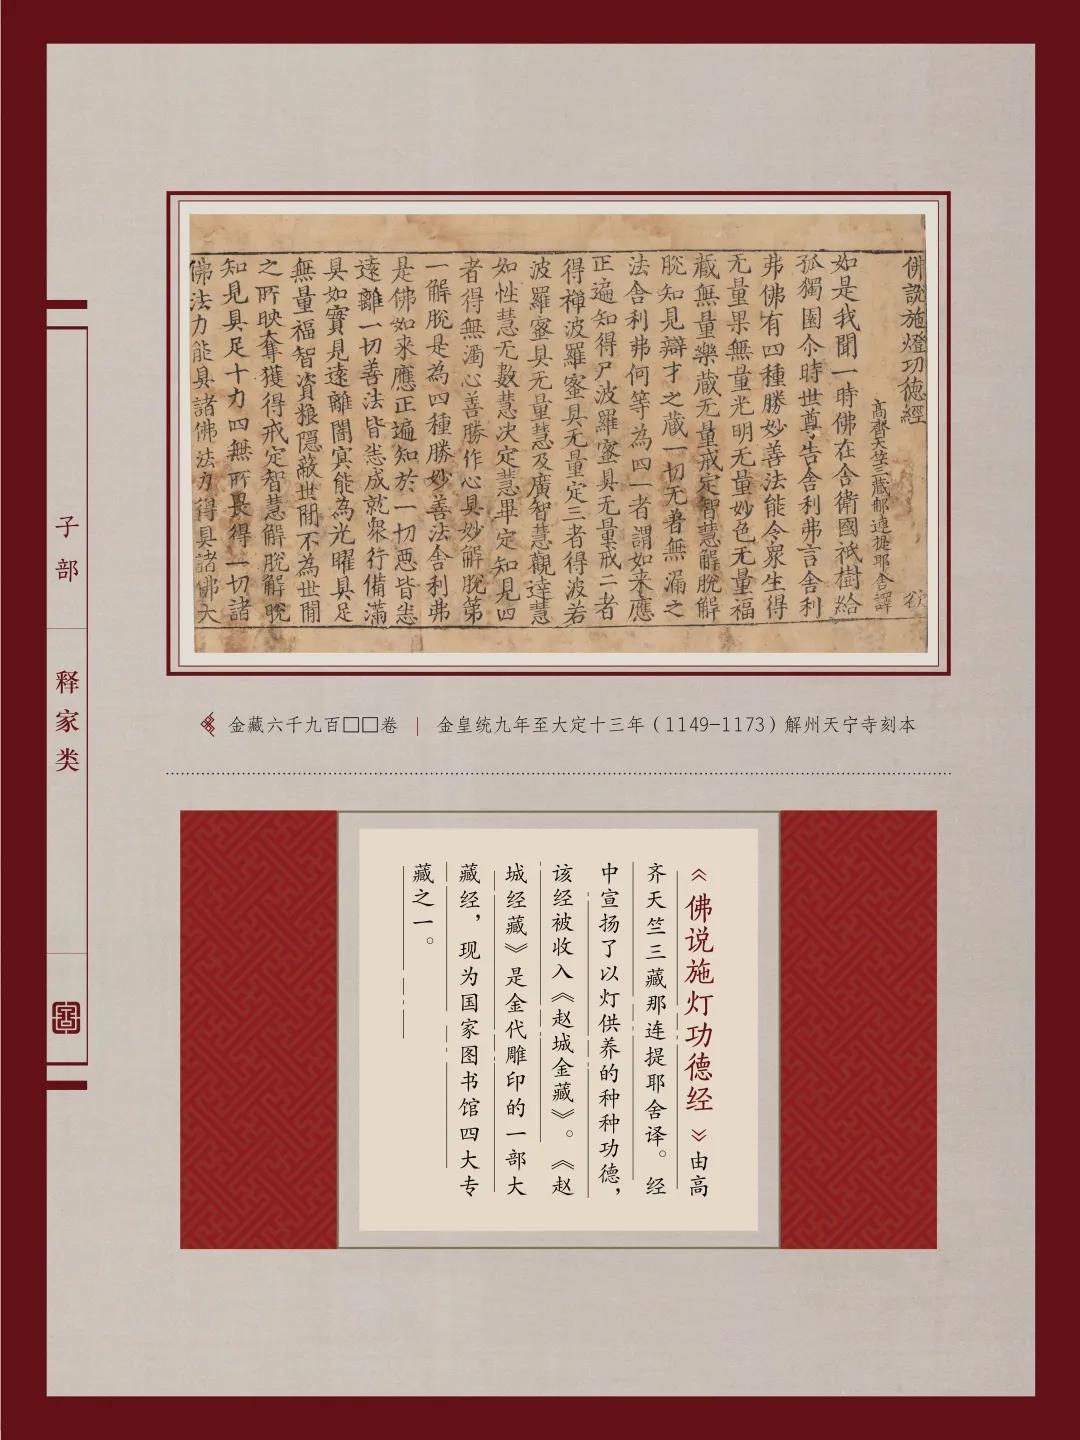 佛說施燈功德經
高齊天竺三藏那連提耶舍譯
如是我聞一時佛在舍衛國祇樹給
孤獨園尒時世尊告舍利弗言舍利
弗佛有四種勝妙善法能令衆生得
无量果無量光明无量妙色无量福
藏無量樂藏无量戒定智慧解脫解
脫知見辯才之藏一切无著無漏之
法舍利弗何等為四一者謂如来應
正遍知得尸波羅蜜具无量戒二者
得禪波羅蜜具无量定三者得波若
波羅蜜具无量慧及廣智慧觀達慧
如性慧无數慧决定慧畢定知見四
者得無濁心善勝作心具妙解脫第
一解脫是為四種勝妙善法舍利弗
是佛如来應正遍知於一切惡皆悉
遠離一切善法皆悉成就衆行備滿
具如實見遠離闇冥能為光曜具足
無量福智資粮隱蔽世間不為世間
之所映奪獲得戒定智慧解脫解脫
知見具足十力四無所畏得一切諸
佛法力能具諸佛法力得具諸佛大
子部
释家类
金藏六千九百□□卷 | 金皇统九年至大定十三年（1149-1173）解州天宁寺刻本
《佛说施灯功德经》由高
齐天竺三藏那连提耶舍译。经
中宣扬了以灯供养的种种功德，
该经被收入《赵城金藏》。《赵
城经藏》是金代雕印的一部大
藏经，现为国家图书馆四大专
藏之一。